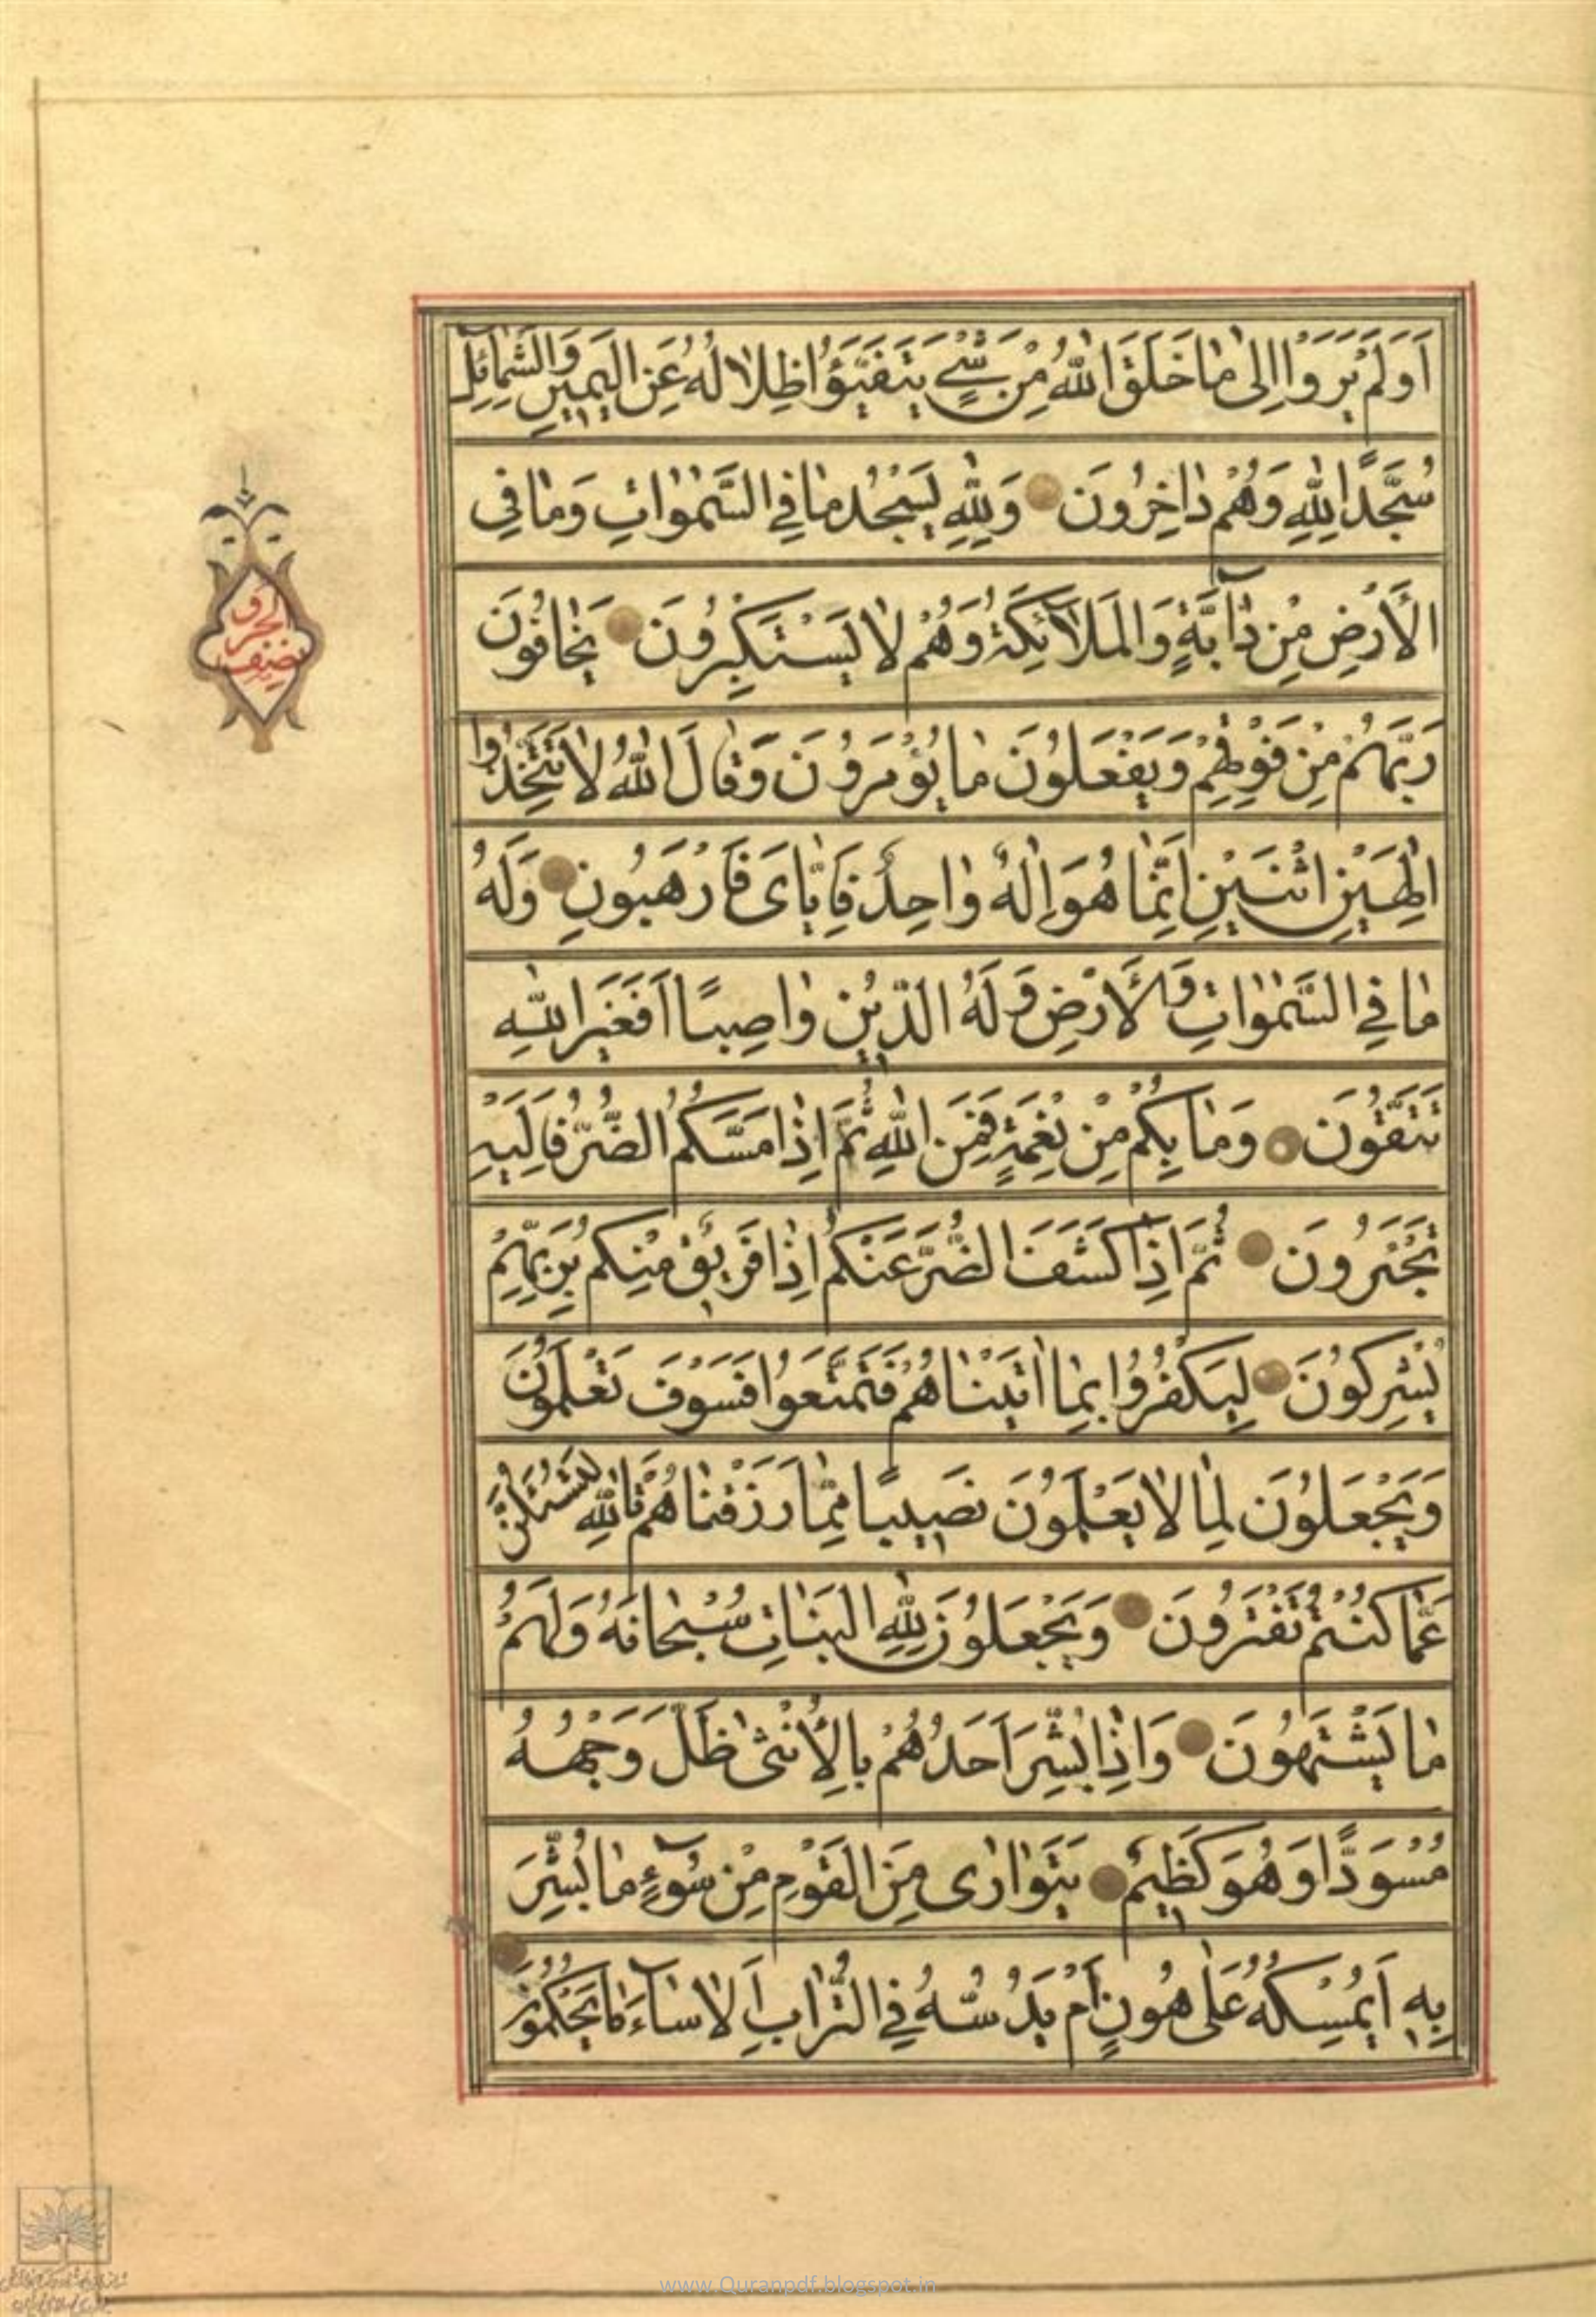 اَوَلَمْ يَرَوْا اِلىٰ مٰا خَلَقَ اللهُ مِنْ شَيْءٍ يَتَفَيَّؤُا ظِلٰالُهُ عَنِ الْيَمينِ وَالشَّمٰائِلِ
سُجَّدًا لِلّٰهِ وَهُمْ دٰاخِرُونَ وَلِلّٰهِ يَسْجُدُ مٰا فِي السَّمٰوٰاتِ وَمٰا فِي
الْاَرْضِ مِنْ دٰابَّةٍ وَالْمَلٰائِكَةُ وَهُمْ لٰا يَسْتَكْبِرُونَ يَخٰافُونَ
رَبَّهُمْ مِنْ فَوْقِهِمْ وَيَفْعَلُونَ مٰا يُؤْمَرُونَ وَقٰالَ اللهُ لٰا تَتَّخِذُوا
اِلٰهَيْنِ اثْنَيْنِ اِنَّمٰا هُوَ اِلٰهٌ وٰاحِدٌ فَاِيّٰايَ فَارْهَبُونِ وَلَهُ
مٰا فِي السَّمٰوٰاتِ وَالْاَرْضِ وَلَهُ الدّينُ وٰاصِبًا اَفَغَيْرَ اللهِ
تَتَّقُونَ وَمٰا بِكُمْ مِنْ نِعْمَةٍ فَمِنَ اللهِ ثُمَّ اِذٰا مَسَّكُمُ الضُّرُّ فَاِلَيْهِ
تَجْئَرُونَ ثُمَّ اِذٰا كَشَفَ الضُّرَّ عَنْكُمْ اِذٰا فَريقٌ مِنْكُمْ بِرَبِّهِمْ
يُشْرِكُونَ لِيَكْفُرُوا بِمٰا اٰتَيْنٰاهُمْ فَتَمَتَّعُوا فَسَوْفَ تَعْلَمُونَ
وَيَجْعَلُونَ لِمٰا لٰا يَعْلَمُونَ نَصيبًا مِمّٰا رَزَقْنٰاهُمْ تَاللهِ لَتُسْئَلُنَّ
عَمّٰا كُنْتُمْ تَفْتَرُونَ وَيَجْعَلُونَ لِلّٰهِ الْبَنٰاتِ سُبْحٰانَهُ وَلَهُمْ
مٰا يَشْتَهُونَ وَاِذٰا بُشِّرَ اَحَدُهُمْ بِالْاُنْثىٰ ظَلَّ وَجْهُهُ
مُسْوَدًّا وَهُوَ كَظيمٌ يَتَوٰارىٰ مِنَ الْقَوْمِ مِنْ سُوٓءِ مٰا بُشِّرَ
بِهِ اَيُمْسِكُهُ عَلىٰ هُونٍ اَمْ يَدُسُّهُ فِي التُّرٰابِ اَلٰا سٰاءَ مٰا يَحْكُمُونَ
نصف
www.Quranpdf.blogspot.in